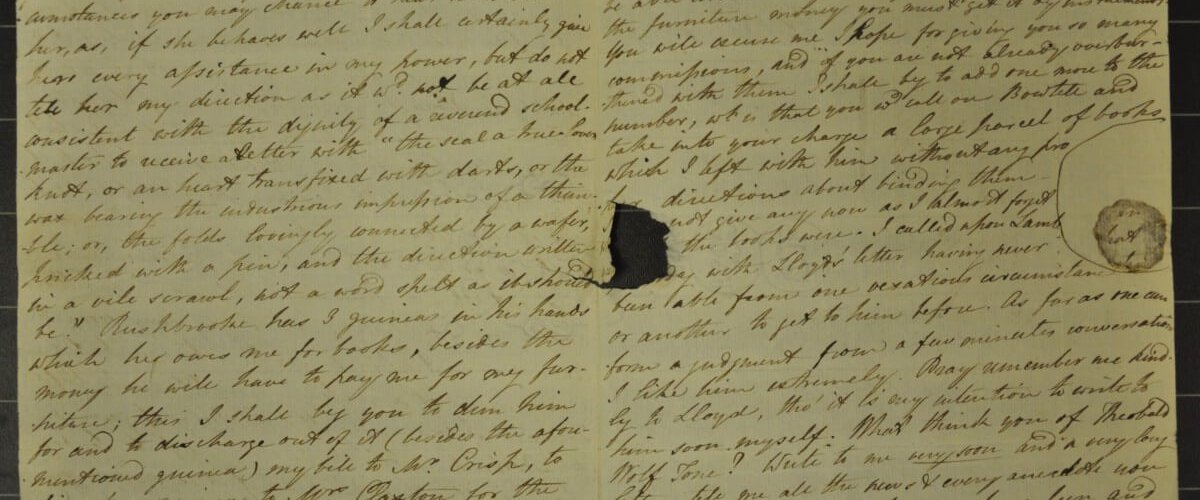 cumstances you may chance to
her, as, if she behaves well I shall certainly give
hers every assistance in my power, but do not
tell her my direction as it wd. not be at all
consistent with the dignity of a reverend school-
master to receive a letter with "the seal a true lovers
knot, or an heart transfixed with darts, or the
wax bearing the industrious impression of a thim-
ble; or, the folds lovingly connected by a wafer,
pricked with a pin, and the direction written
in a vile scrawl, not a word spelt as it should
be." Rushbrooke has 3 guineas in his hands
which he owes me for books, besides the
money he will have to pay me for my fur-
niture; this I shall beg you to dun him
for and to discharge out of it (besides the afore-
mentioned guinea) my bill to Mr. Crisp, to
to Mrs. Paxton for the
the furniture money you must get it by
You will excuse me I hope for giving you so many
commissions, and if you are not already overbur-
thened with them I shall beg to add one more to the
number, wh. is that you wd. call on Bowtell and
take into your charge a large parcel of books
which I left with him without any pro
per directions about binding them -
not give any now as I almost forget
the books were. I called upon Lamb
day with Lloyd's letter having never
been able from one vexatious circumstance
or another to get to him before. As far as one can
form a judgment from a few minutes conversation
I like him extremely. Pray remember me kind-
ly to Lloyd, tho' it is my intention to write to
him soon myself. What think you of Theobald
Wolf Tone? Write to me very soon and a very long
tell me all the news & every anecdote you
and